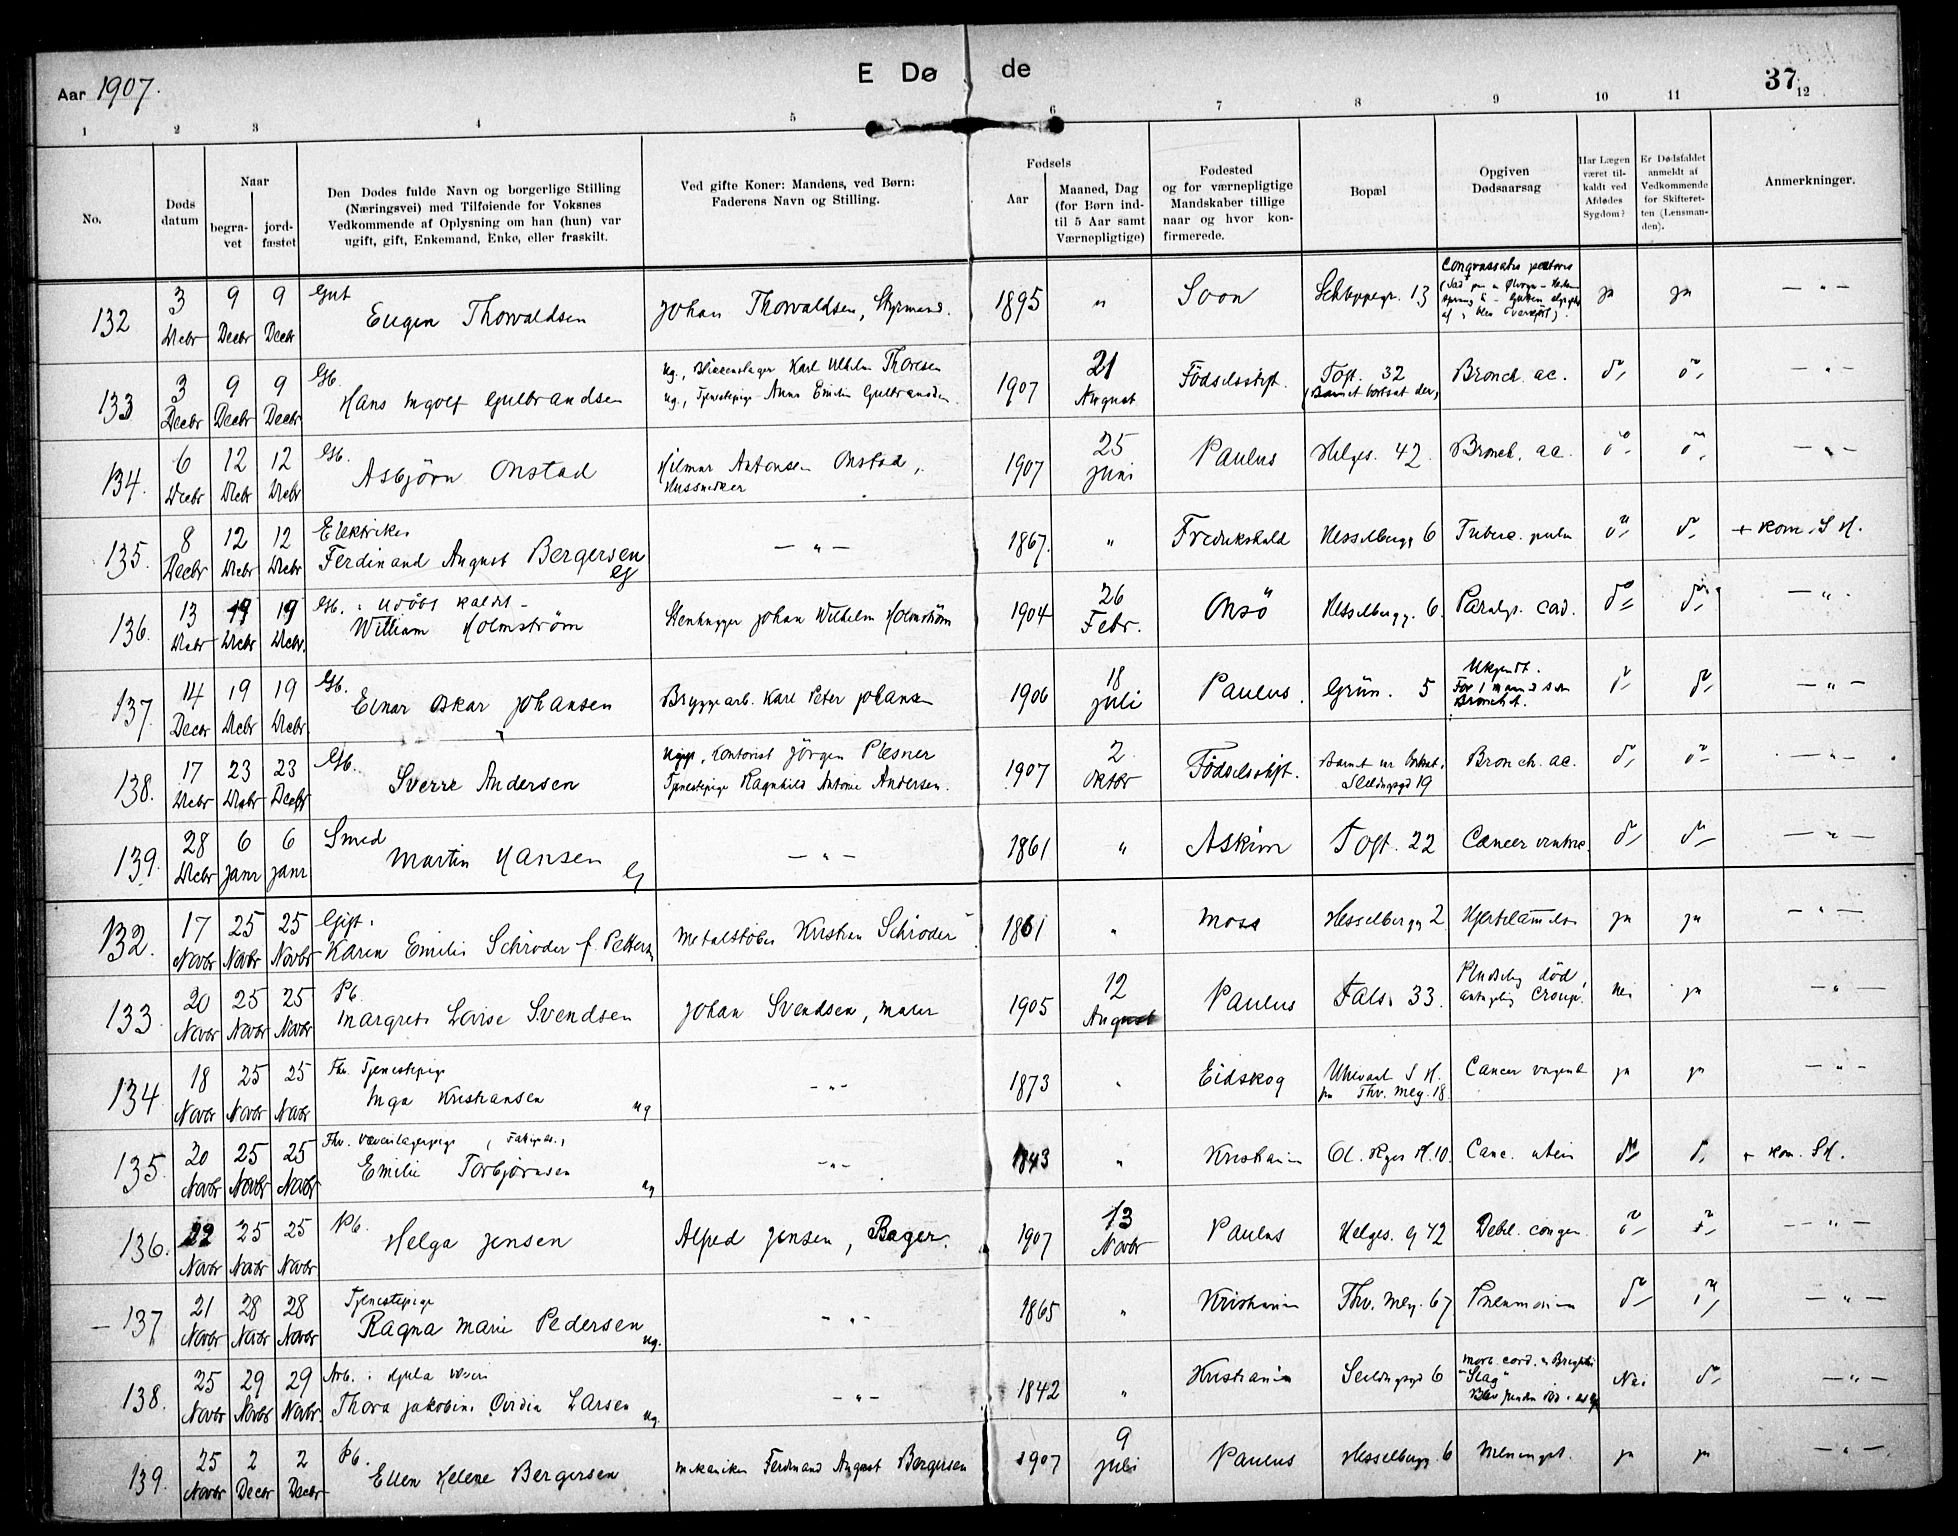 Aar 1907.
E Dø de
37
1 2 3 4 5 6 7 8 9 10 11 12
No.
Døds datum
Naar
begra-vet
jord-fæstet
Den Dødes fulde Navn og borgerlige Stilling
(Næringsvei) med Tilføiende for Voksnes
Vedkommende af Oplysning om han (hun) var
ugift, gift, Enkemand, Enke, eller fraskilt.
Ved gifte Koner: Mandens, ved Børn:
Faderens Navn og Stilling.
Fødsels
Aar
Maaned, Dag
(for Børn ind-
til 5 Aar samt
Værnepligtige)
Fødested
og for værnepligtige
Mandskaber tillige
naar og hvor kon-
firmerede.
Bopæl
Opgiven
Dødsaarsag
Har Lægen
været til-
kaldt ved
Afdødes
Sygdom?
Er Dødsfaldet
anmeldt af
Vedkommende
for Skifteret-
ten (Lensman-
den).
Anmerkninger.
132 3 Decbr 9 Decbr 9 Decbr Gut
Eugen Thorvaldsen Johan Thorvaldsen, Styrmand. 1895 " Soon 13 ja ja — " —
133 3 Decbr 9 Decbr 9 Decbr Gb.
Hans Ingolf Gulbrandsen Ug., Blikkenslager Karl Vilhelm Thoresen
Ug., Tjenestepige Anna Emilie Gulbrandsen. 1907 21 August Fødselsstift. Toft. 32
(Barnet bortsat der) Bronch. ac. do do — " —
134. 6 Decbr 12 Decbr 12 Decbr Gb.
Asbjørn Onstad Hilmar Antonsen Onstad,
Hussnedker 1907 25 Juni Paulus Helges. 42. Bronch. ac. do do — " —
135. 8 Decbr 12 Decbr 12 Decbr Elektriker
Ferdinand August Bergersen
G — " — 1867. " Fredrikshald Hesselbergg 6 Tuberc. pulm do do + kom. S H.
136. 13 Decbr 19 Decbr 19 Decbr. Gb. : udøbt kaldt —
William Holmström Stenhugger Johan Wilhelm Holmström 1904 26 Febr. Onsö Hesselbergg. 6. Paralys. cord. do do — " —
137. 14 Decbr 19 Decbr 19 Decbr Gb.
Einar Oskar Johansen Bryggearb. Karl Peter Johansen 1906 18 Juli Paulus. Grün. 5 Ukjendt.
Bronchit. do do — " —
138. 17 Decbr 23 Decbr 23 Decbr Gb.
Sverre Andersen Ugift, Kontorist Jörgen Plesner
Tjenestepige Ragnhild Antonie Andersen. 1907 2 Oktbr Fødselsstift. Barnet var bortsat.
Seildugsgd 19 Bronch. ac. do do — " —
139. 28 Decbr 6 Janr 6 Janr Smed
Martin Hansen
G — " — 1861 " Askim Toft. 22 Cancer ventric. do do — " —
132. 17 Novbr 25 Novbr 25 Novbr Gift.
Karen Emilie Schrøder f. Pettersen Metalstøber Kristian Schrøder 1861 " Moss Hesselbergg 2 Hjertelammelse ja ja — " —
133 20 Novbr 25 Novbr 25 Novbr Pb.
Margrete Lovise Svendsen Johan Svendsen, maler 1905 12 August Paulus Fals. 33. Pludselig død,
antagelig Croup. Nei ja — " —
134 18 Novbr 25 Novbr 25 Novbr Fhv. Tjenestepige
Inga Kristiansen
ug — " — 1873 " Eidskog Ullevaal S H.
fra Thv. Meg. 18. Cancer vaginæ ja ja — " —
135. 20 Novbr 25 Novbr 25 Novbr Fhv.
Emilie Torbjørnsen
ug — " — 1843 " Kristiania Ol. Ryes Pl. 10. Canc. uteri do do + kom. S H.
136. 22 Novbr 25 Novbr 25 Novbr Pb.
Helga Jensen Alfred Jensen, Bager. 1907 13 Novbr Paulus Helges. g 42 Debil. congen. do do — " —
— 137 21 Novbr 28 Novbr 28 Novbr Tjenestepige
Ragna Marie Pedersen
ug. — " — 1865 " Kristiania Thv. Meg. 67 Pneumonia do do — " —
138. 25 Novbr 29 Novbr 29 Novbr. Arb. i Hjula Væveri
Thora Jakobine Ovidia Larsen
ug. — " — 1842 " Kristiania Seildugsgd 6 Morb. cord. & Brightii
"Slag" Nei do — " —
139. 25 Novbr 2 Decbr 2 Decbr Pb.
Ellen Helene Bergersen Mekaniker Ferdinand August Bergersen 1907 9 Juli Paulus Hesselbergg. 6 Meningit. ja ja — " —